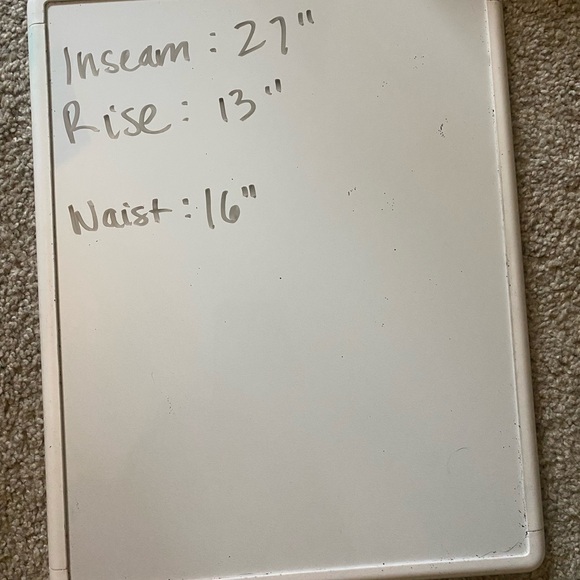 Inseam: 27"
Rise: 13"
Waist: 16"